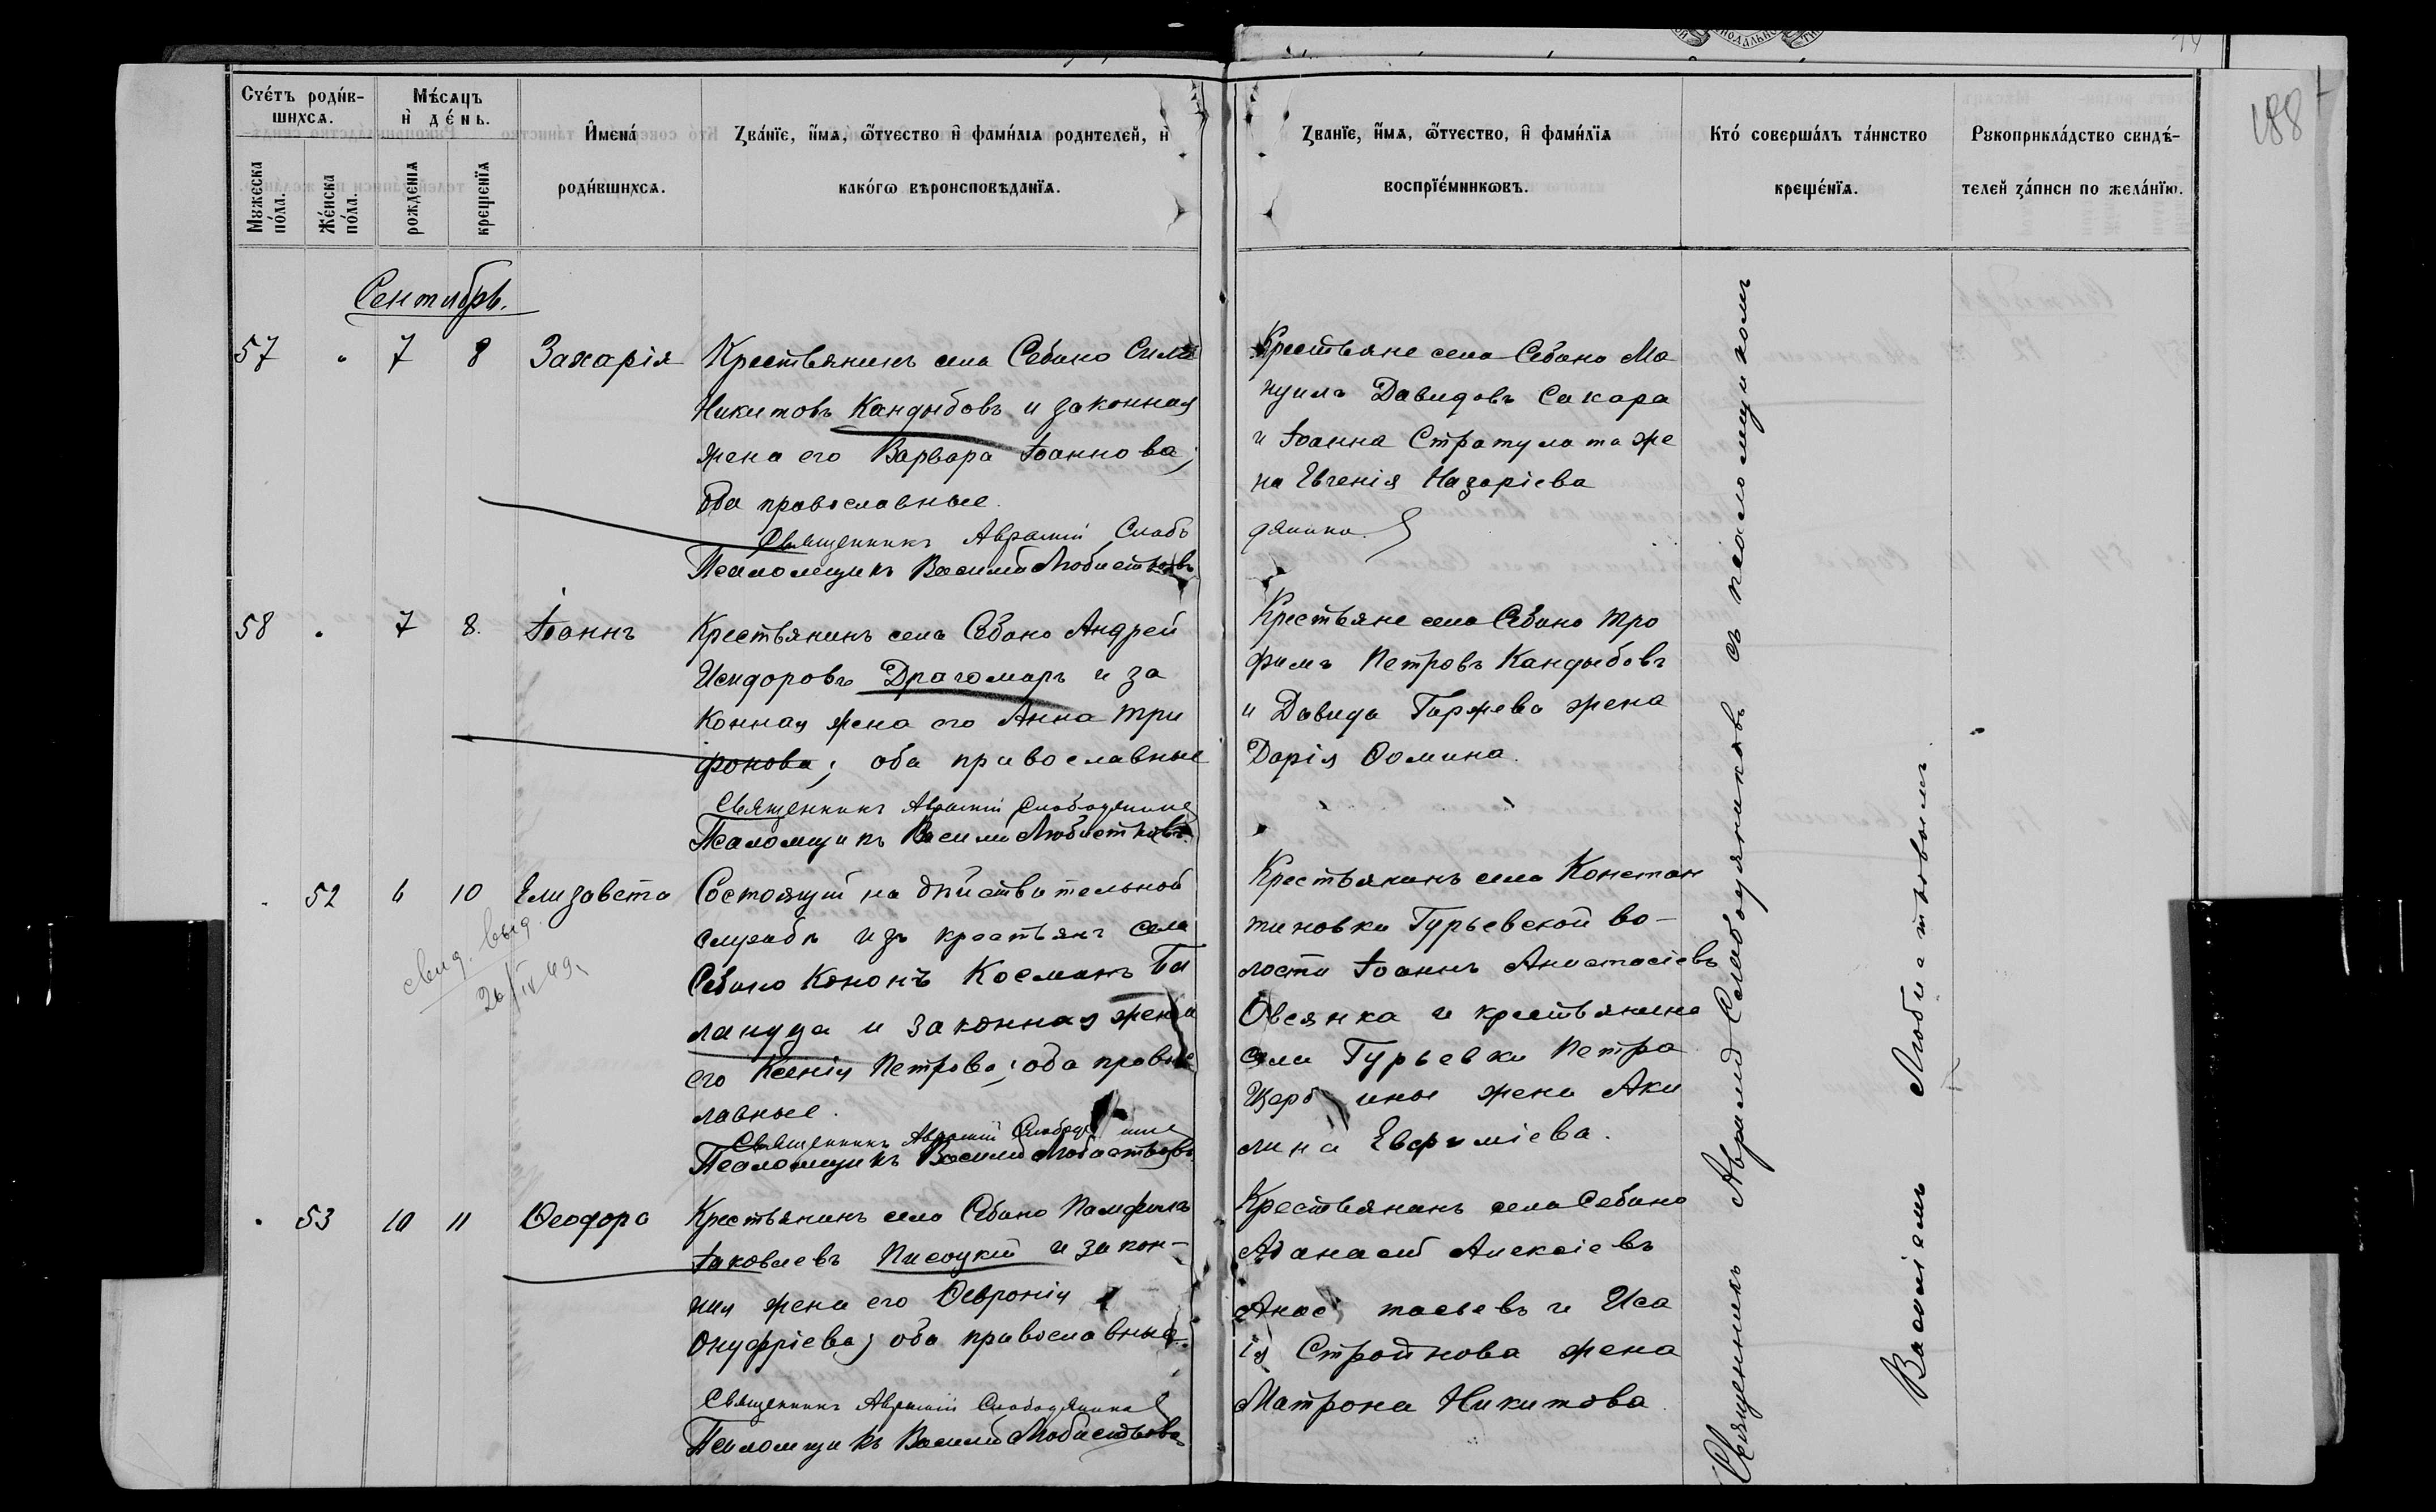 Счетъ родив-
шихся.
Мѣсяцъ
и день.
Мужеска
пола.
Женска
пола.
рожденія
крещенія
Имена
родившихся.
Званіе, имя, отчество и фамилія родителей, и
какого вѣроисповѣданія.
Званіе, имя, отчество, и фамилія
воспріемниковъ.
Кто совершалъ таинство
крещенія.
Рукоприкладство свидѣ-
телей записи по желанію.
188
Сентябрь.
57 " 7 8 Захарія
Крестьянинъ села Себино Сила
Никитовъ Кандыбовъ и законная
жена его Варвара Іоаннова;
оба православные.
Священникъ Аврамій Слабо
Псаломщикъ Василій Любистковъ
Крестьяне села Себино Ма
нуилъ Давидовъ Сакара
и Іоанна Стратулата же
на Евгенія Назаріева
дяника
58 " 7 8. Іоаннъ
Крестьянинъ села Себино Андрей
Исидоровъ Драгомаръ и за
конная жена его Анна Три
фонова; оба православные
Священникъ Аврамій Слабодяникъ
Псаломщикъ Василій Любистковъ
Крестьяне села Себино Тро
фимъ Петровъ Кандыбовъ
и Давида Гаржева жена
Дарія Ѳомина.
" 52 6 10 Елизавета
свид. выд.
26/IV 49
Состоящій на дѣйствительной
службѣ изъ крестьянъ села
Себино Кононъ Косминъ Ба
лануца и законная жена
его Ксенія Петрова; оба правос
лавные.
Священникъ Аврамій
Псаломщикъ Василій Любистковъ
Крестьянинъ села Констан
тиновки Гурьевской во-
лости Іоаннъ Анастасіевъ
Овсянка и крестьянина
села Гурьевки Петра
Щербины жена Аки
лина Евфиміева.
" 53 10 11 Ѳеодора
Крестьянинъ села Себино Памфилъ
Іаковлевъ Писоцкій и закон-
ная жена его Ѳевронія
Онуфріева; оба православные.
Священникъ Аврамій Слабодяникъ
Псаломщикъ Василій Любистковъ
Крестьянинъ села Себино
Аѳанасій Алексіевъ
Анастасьевъ и Иса
ія Стройнова жена
Матрона Никитова
Священникъ Аврамій Слабодяниковъ съ псаломщикомъ
Василіемъ Любистковымъ.